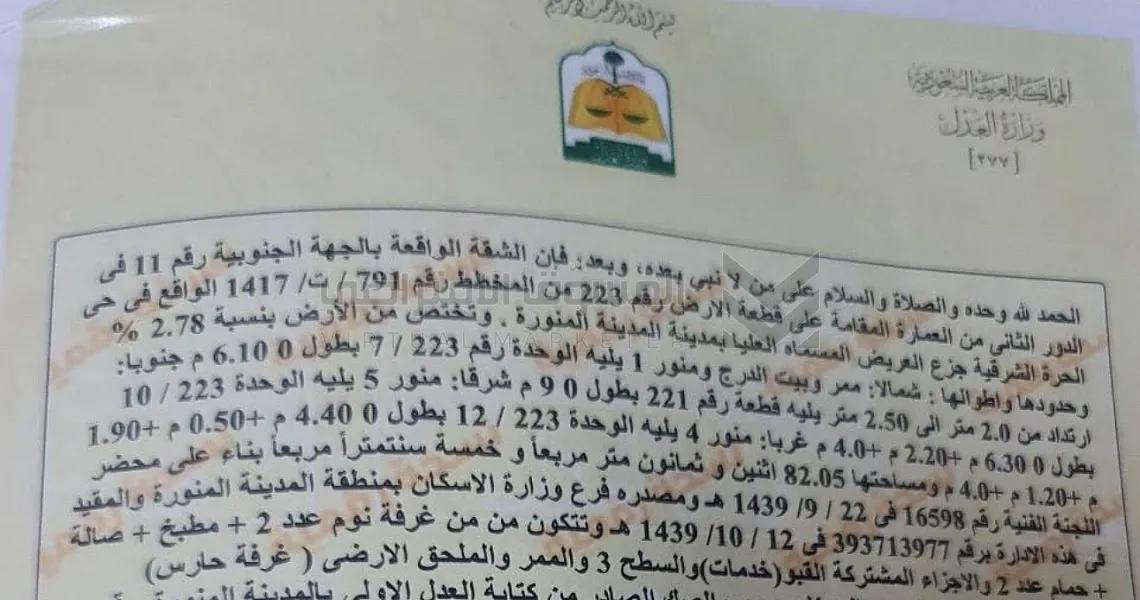 بسم الله الرحمن الرحيم
المملكة العربية السعودية
وزارة العدل
[٢٧٧]
الحمد لله وحده والصلاة والسلام على من لا نبي بعده، وبعد: فان الشقة الواقعة بالجهة الجنوبية رقم 11 فى
الدور الثانى من العمارة المقامة على قطعة الارض رقم 223 من المخطط رقم 791 / ت/ 1417 الواقع فى حى
الحرة الشرقية جزع العريض المسماه العليا بمدينة المدينة المنورة . وتختص من الأرض بنسبة 2.78 %
وحدودها واطوالها : شمالا: ممر وبيت الدرج ومنور 1 يليه الوحدة رقم 223 / 7 بطول 0 6.10 م جنوبيا:
ارتداد من 2.0 متر الى 2.50 متر يليه قطعة رقم 221 بطول 0 9 م شرقا: منور 5 يليه الوحدة 223 / 10
بطول 0 6.30 م +2.20 م +4.0 م غربا: منور 4 يليه الوحدة 223 / 12 بطول 0 4.40 م +0.50 م +1.90
م +1.20 م +4.0 م ومساحتها 82.05 اثنين و ثمانون متر مربعاً و خمسة سنتمتراً مربعاً بناء على محضر
اللجنة الفنية رقم 16598 فى 22 / 9 / 1439 هـ ومصدره فرع وزارة الاسكان بمنطقة المدينة المنورة والمقيد
فى هذه الادارة برقم 393713977 فى 12 / 10 / 1439 هـ وتتكون من من غرفة نوم عدد 2 + مطبخ + صالة
+ حمام عدد 2 والاجزاء المشتركة القبو(خدمات)والسطح 3 والممر والملحق الارضى ( غرفة حارس)
الصك الصادر من كتابة العدل الاولى بالمدينة المنورة